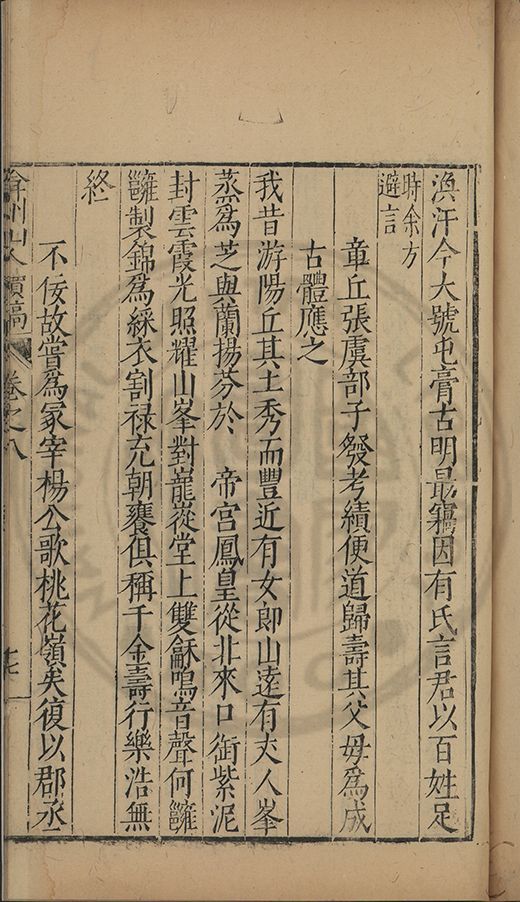 渙汗今大號屯膏古明最竊因有氏言君以百姓足
時余方
避言
章丘張虞部子發考績便道歸壽其父母爲成
古體應之
我昔游陽丘其土秀而豐近有女郎山逺有夫人峯
蒸爲芝與蘭揚芬於　帝宮鳳皇從北來口銜紫泥
封雲霞光照耀山峯對巃嵸堂上雙龢鳴音聲何雝
雝製錦爲綵衣割祿充朝饔俱稱千金壽行樂浩無
終
不佞故嘗爲冢宰楊公歌桃花嶺矣復以郡丞
弇州山人續稿　卷之八　十七